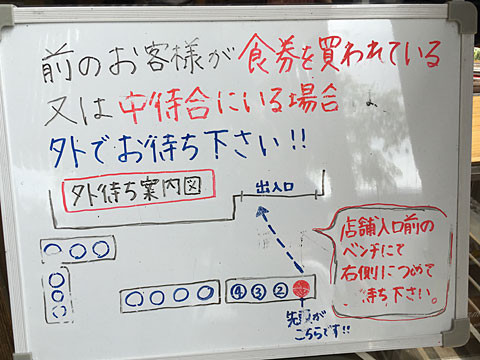 前のお客様が食券を買われている
又は中待合にいる場合は、
外でお待ち下さい!!
外待ち案内図
出入口
店舗入口前の
ベンチにて
右側につめて
待ち下さい。
④③②
先頭が
こちらです!!